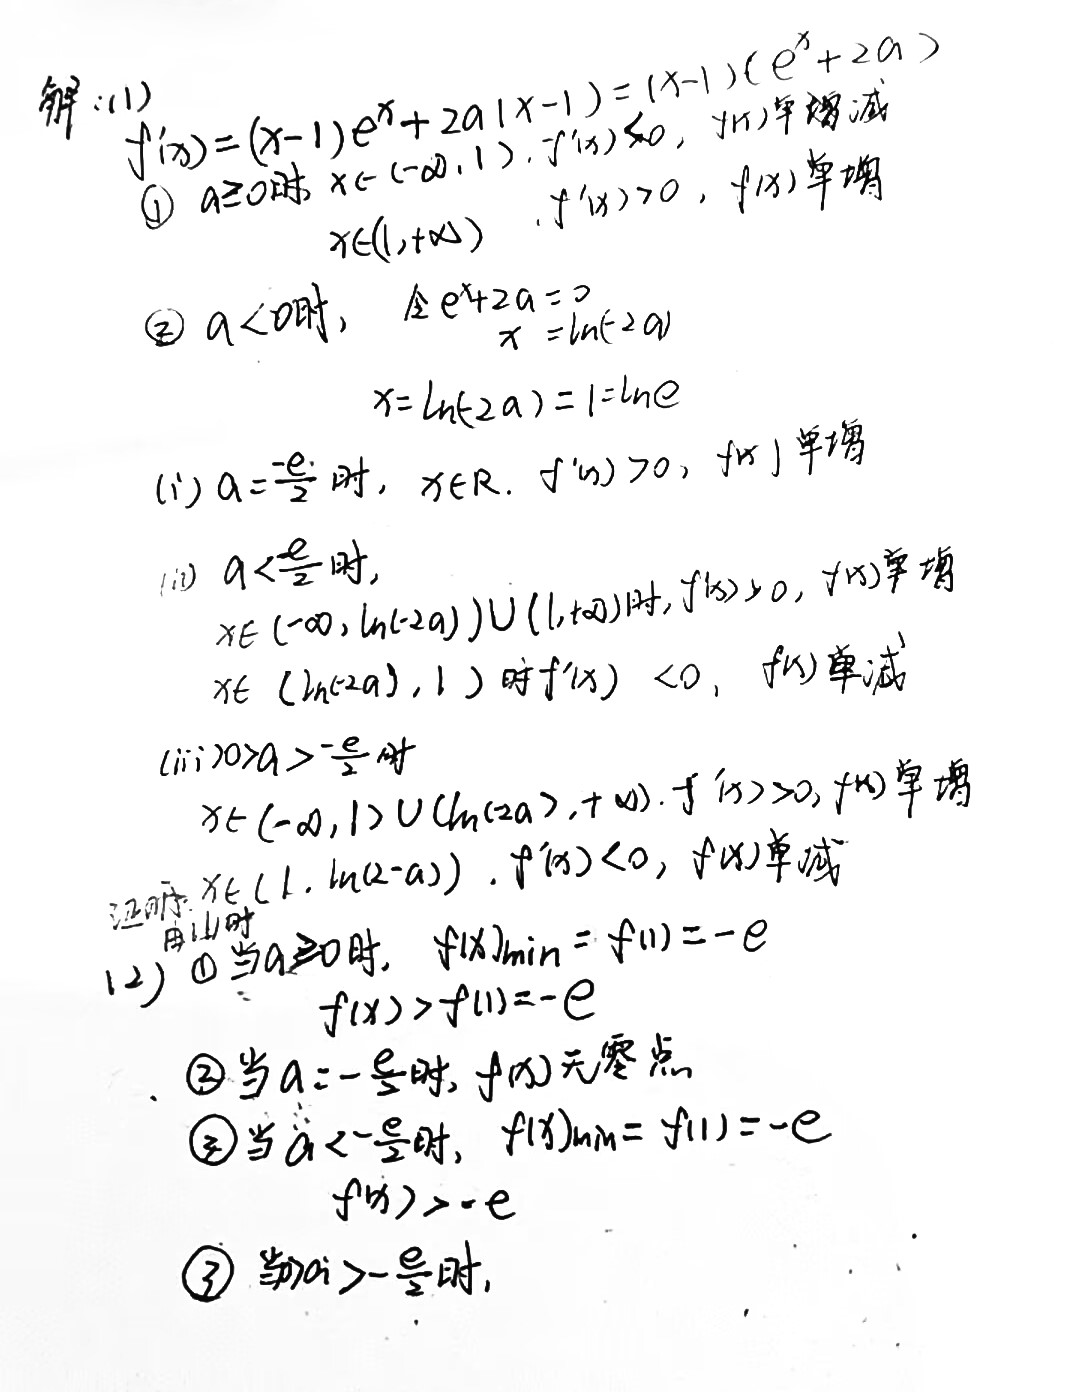 解:(1)
f'(x)=(x-1)e^x+2a(x-1)=(x-1)(e^x+2a)
① a≥0时, x∈(-∞,1), f'(x)<0, f(x)单减
x∈(1,+∞), f'(x)>0, f(x)单增
② a<0时, 令e^x+2a=0
x=ln(-2a)
x=ln(-2a)=1=lne
(i) a=-e/2时, x∈R. f'(x)>0, f(x)单增
(ii) a<-e/2时,
x∈(-∞,ln(-2a))∪(1,+∞)时, f'(x)>0, f(x)单增
x∈(ln(-2a),1)时f'(x)<0, f(x)单减
(iii)0>a>-e/2时
x∈(-∞,1)∪(ln(-2a),+∞). f'(x)>0, f(x)单增
x∈(1,ln(2-a)). f'(x)<0, f(x)单减
证明:
由(1)时
(2) ①当a≥0时, f(x)min=f(1)=-e
f(x)>f(1)=-e
②当a=-e/2时, f(x)无零点
③当a<-e/2时, f(x)min=f(1)=-e
f(x)>-e
③当0>a>-e/2时,